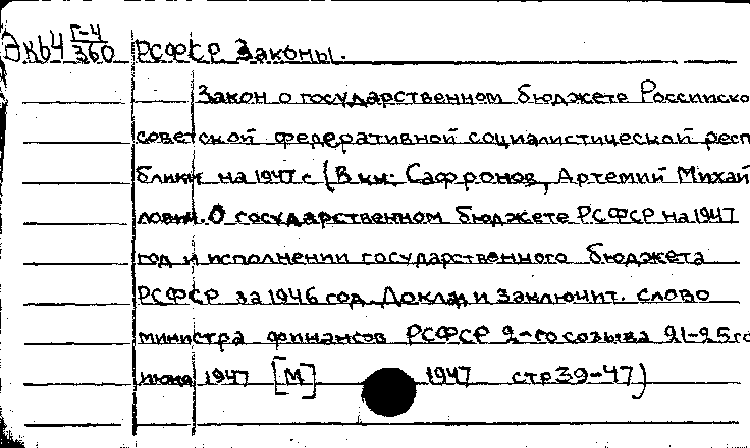 Экb4 Г-4/360 РСФСР Законы.
Закон о государственном бюджете Российско
советской федеративной социалистической респ
блики на 1947 г (В кн: Сафронов, Артемий Михай
лович. О государственном бюджете РСФСР на 1947
год и исполнении государственного бюджета
РСФСР за 1946 год. Доклад и заключит. слово
министра финансов РСФСР 2-го созыва 21-25го
июня 1947 [М] 1947 стр 39-47)